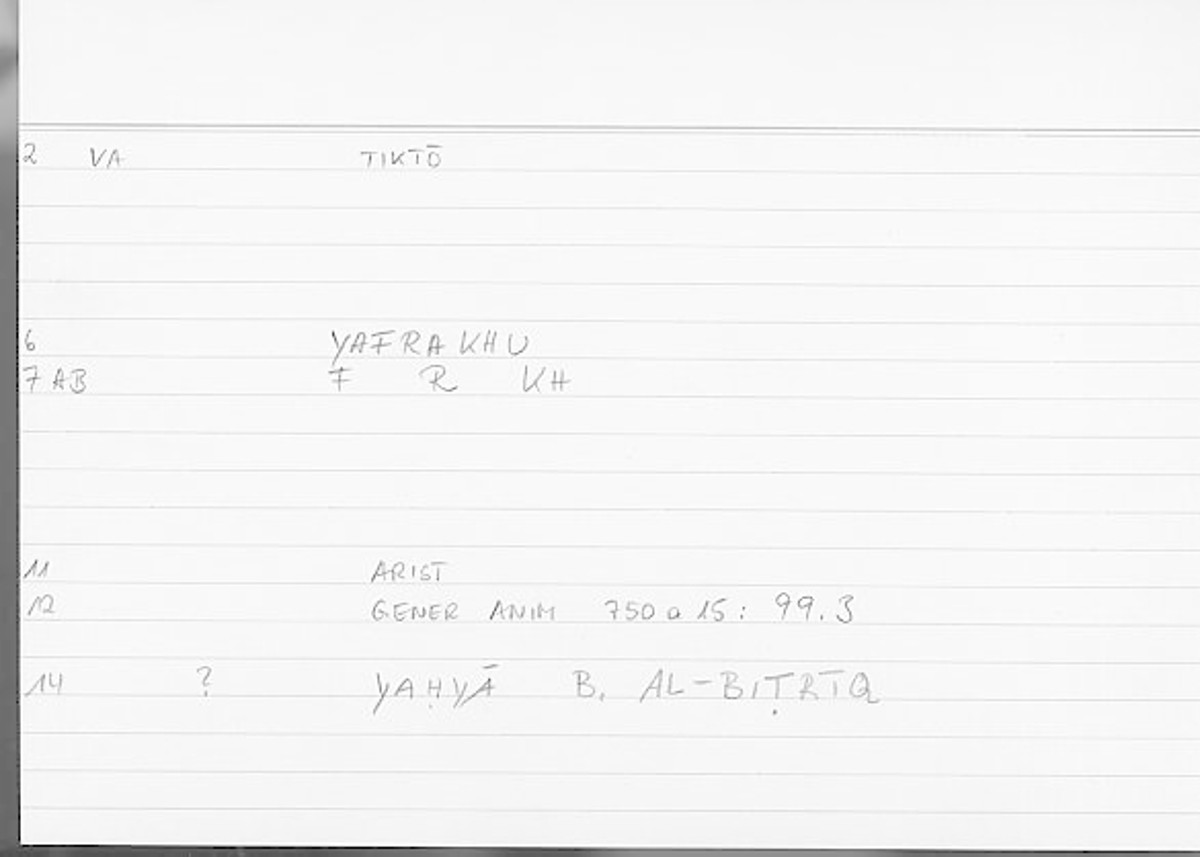 2 VA TIKTŌ
6 YAFRAKHU
7 AB F R KH
11 ARIST
12 GENER ANIM 750 a 15: 99.3
14 ? YAḤYĀ B. AL-BIṬRĪQ